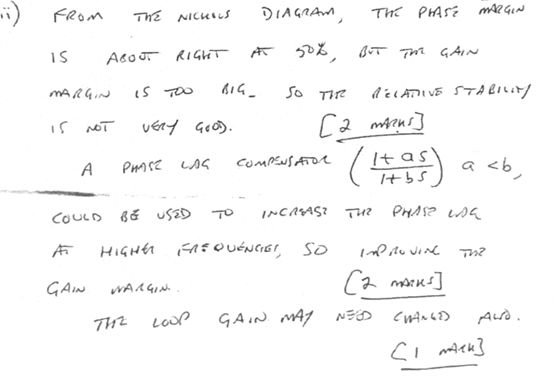 ii) FROM THE NICHOLS DIAGRAM, THE PHASE MARGIN
IS ABOUT RIGHT AT 50%, BUT THE GAIN
MARGIN IS TOO BIG_ SO THE RELATIVE STABILITY
IS NOT VERY GOOD. [2 MARKS]
A PHASE LAG COMPENSATOR (1+as / 1+bs) a < b,
COULD BE USED TO INCREASE THE PHASE LAG
AT HIGHER FREQUENCIES, SO IMPROVING THE
GAIN MARGIN. [2 MARKS]
THE LOOP GAIN MAY NEED CHANGED ALSO.
[1 MARK]